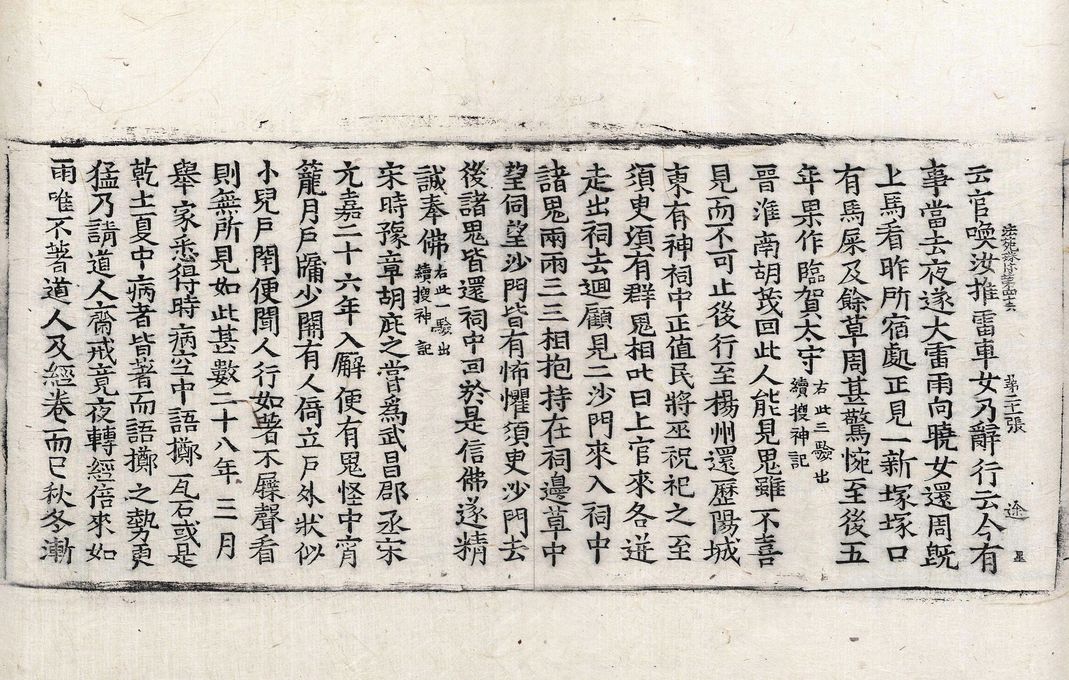 云官喚汝推雷車女乃辭行云今有
法苑珠林第四六 第二十張 途
星
事當去夜遂大雷雨向曉女還周旣
上馬看昨所宿處正見一新塚塚口
有馬屎及餘草周甚驚惋至後五
年果作臨賀太守右此三驗出續搜神記
晉淮南胡茂回此人能見鬼雖不喜
見而不可止後行至楊州還歷陽城
東有神祠中正值民將巫祝祀之至
須臾頃有群鬼相叱曰上官來各迸
走出祠去迴顧見二沙門來入祠中
諸鬼兩兩三三相抱持在祠邊草中
望伺望沙門皆有怖懼須臾沙門去
後諸鬼皆還祠中回於是信佛遂精
誠奉佛右此一驗出續搜神記
宋時豫章胡庇之嘗爲武昌郡丞宋
元嘉二十六年入廨便有鬼怪中宵
籠月戶牖少開有人倚立戶外狀似
小兒戶閇便聞人行如著木屧聲看
則無所見如此甚數二十八年三月
舉家悉得時病空中語擲瓦石或是
乾土夏中病者皆著而語擲之勢更
猛乃請道人齋戒竟夜轉經倍來如
雨唯不著道人及經卷而已秋冬漸